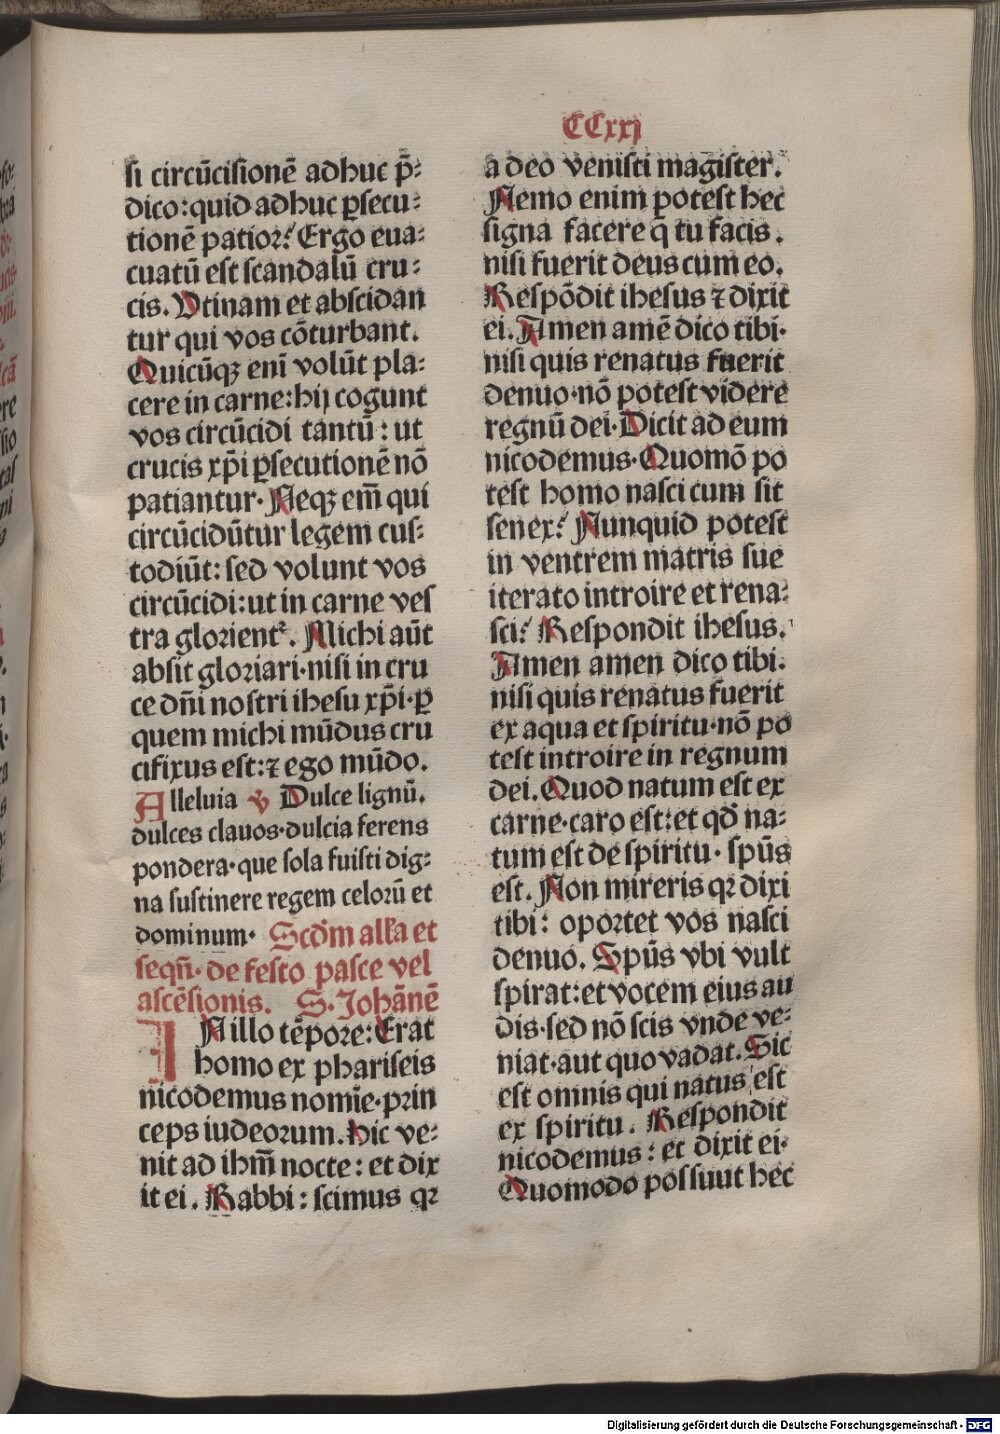 CCxxj
si circūcisionē adhuc p̄⸗
dico:quid adhuc ꝑsecu⸗
tionē patior? Ergo eua⸗
cuatū est scandalū cru⸗
cis. Vtinam et abscidan
tur qui vos cōturbant.
Quicūqꝫ eni volūt pla⸗
cere in carne:hij cogunt
vos circūcidi tantū : ut
crucis xp̄i ꝑsecutionē nō
patiantur· Neqꝫ em̄ qui
circūcidūtur legem cus⸗
todiūt: sed volunt vos
circūcidi:ut in carne ves
tra glorient᷑. Michi aūt
absit gloriari·nisi in cru
ce dn̄i nostri ihesu xp̄i·ꝑ
quem michi mūdus cru
cifixus est:⁊ ego mūdo.
Alleluia ℣ Dulce lignū.
dulces clauos·dulcia ferens
pondera·que sola fuisti dig⸗
na sustinere regem celorū et
dominum· Scd̓m all'a et
seqn̄· de festo pasce vel
ascēsionis. S. Johānē
IN illo tēpore: Erat
homo ex phariseis
nicodemus nomīe·prin
ceps iudeorum.Hic ve⸗
nit ad ihm̄ nocte: et dix
it ei. Rabbi: scimus qꝛ
a deo venisti magister.
Nemo enim potest hec
signa facere q tu facis.
nisi fuerit deus cum eo.
Respōdit ihesus ⁊ dixit
ei. Amen amē dico tibi·
nisi quis renatus fuerit
denuo·nō potest videre
regnū dei· Dicit ad eum
nicodemus· Quomō po
test homo nasci cum sit
senex? Nunquid potest
in ventrem matris sue
iterato introire et rena⸗
sci? Respondit ihesus.
Amen amen dico tibi.
nisi quis renatus fuerit
ex aqua et spiritu·nō po
test introire in regnum
dei. Quod natum est ex
carne·caro est:et qd̓ na⸗
tum est de spiritu· spūs
est. Non mireris qꝛ dixi
tibi: oportet vos nasci
denuo. Spūs vbi vult
spirat:et vocem eius au
dis·sed nō scis vnde ve⸗
niat·aut quo vadat. Sic
est omnis qui natus est
ex spiritu. Respondit
nicodemus: et dixit ei·
Quomodo possuut hec
Digitalisierung gefördert durch die Deutsche Forschungsgemeinschaft - DFG